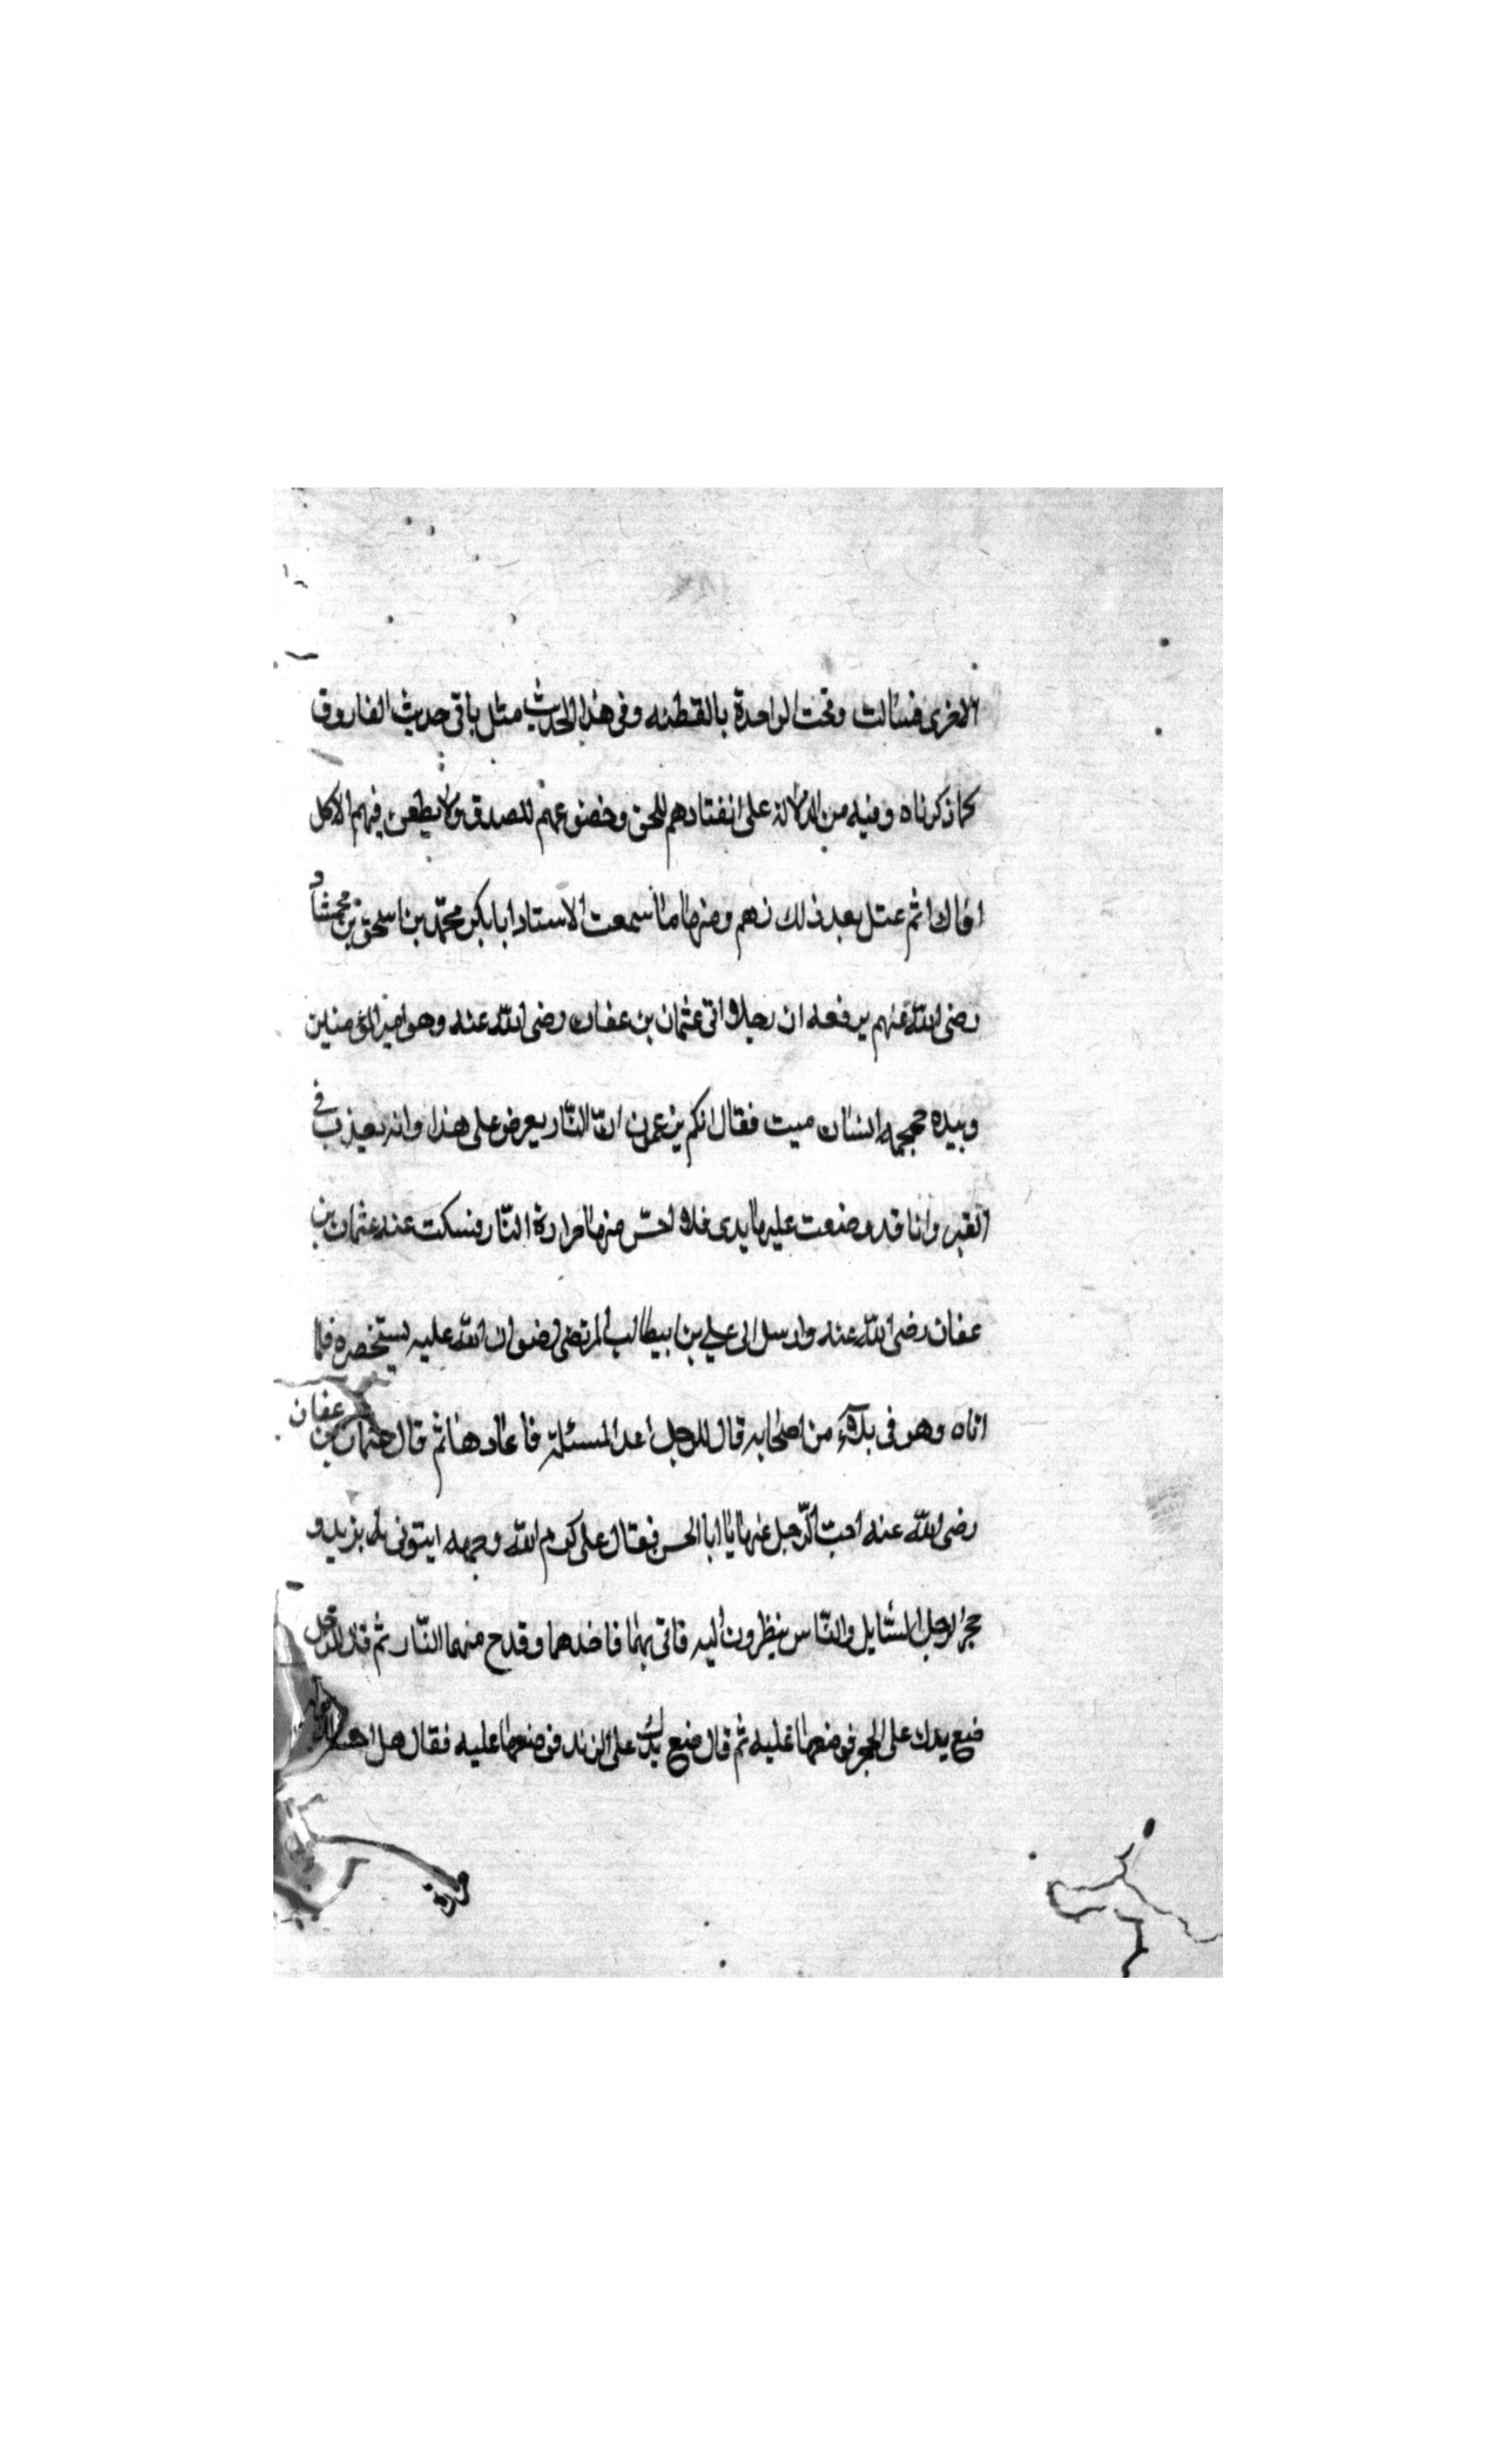 الاخرى فسالت وقحت الواحدة بالقطنه وفى هذا الحديث مثل باقى حديث الفاروق
كما ذكرناه وفيه من الدلالة على انقتادهم للحق وخضوعهم للصدق ولا يطعن فيهم الا كل
افاك اثم عتل بعد ذلك زهم ومنها ما سمعت الاستاد ابا بكر محمّد بن اسحق بن محمشاد
رضى الله عنهم يرفعه ان رجلا اتى عثمان بن عفان رضى الله عنه وهو امير المؤمنين
وبيده جمجمه انسان ميت فقال انكم تزعمون انّ النّار يعرض على هذا وانه يعذب فى
القبر وانا قد وضعت عليها يدى فلا احسّ منها حرارة النّار فسكت عنه عثمان بن
عفان رضى الله عنه وارسل الى على بن ابيطالب المرتضى رضوان الله عليه يستحضره فلما
اتاه وهو فى ملاء من اصحابه قال للرجل اعد المسئلة فاعادها ثم قال عثمان بن عفان
رضى الله عنه اجب الرّجل عنها يا ابا الحسن فقال على كرم الله وجهه ايتونى بزند و
حجر الرجل السّايل والنّاس ينظرون اليه فاتى بهما فاخذهما وقدح منهما النّار ثم قال للرّجل
ضع يدك على الحجر فوضعها عليه ثم قال ضع يدك على الزند فوضعها عليه فقال هل